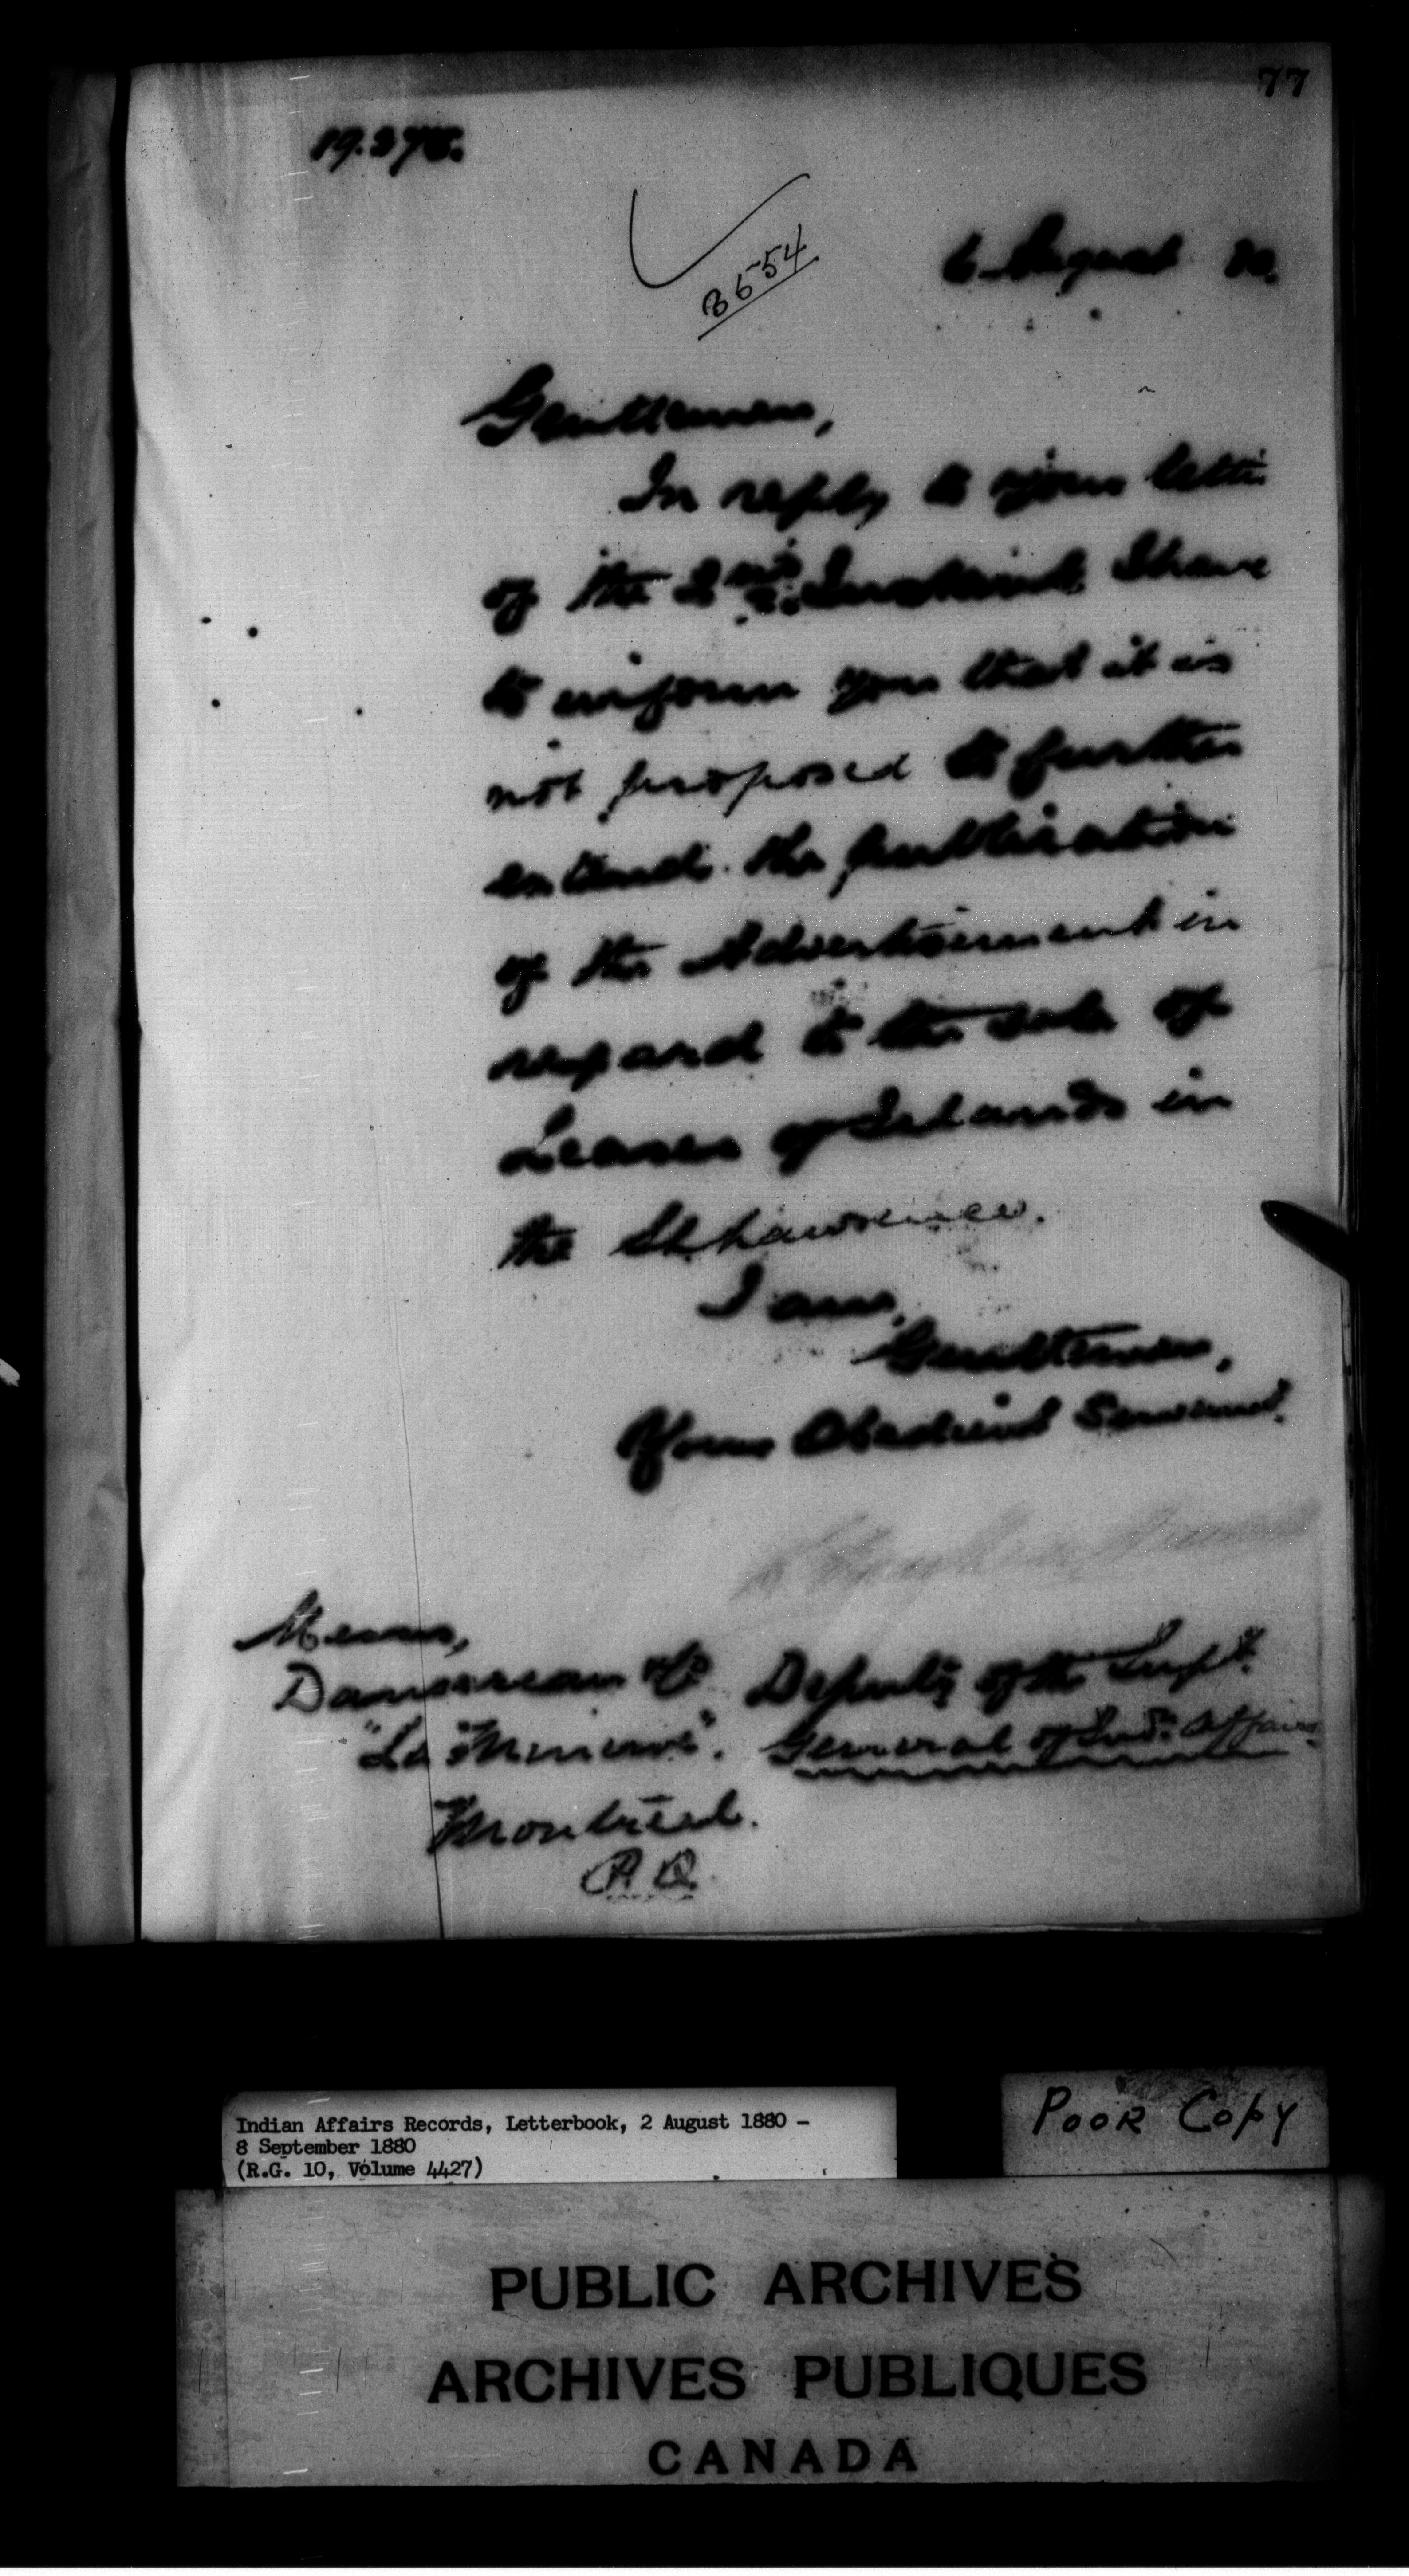 77
3654
6 August 80.
Gentlemen,
In reply to your letter
of the 2nd Instant I have
to inform you that it is
not proposed to further
extend the publication
of the Advertisement in
regard to the sale of
Leases of Islands in
the St. Lawrence.
I am,
Gentlemen,
Your Obedient Servant.
Messrs,
Dansereau &Co
"La Minerve".
Montreal.
P.Q.
Deputy of the Supt.
General of Ind. Affairs.
Indian Affairs Records, Letterbook, 2 August 1880 –
8 September 1880
(R.G. 10, Volume 4427)
POOR COPY
PUBLIC ARCHIVES
ARCHIVES PUBLIQUES
CANADA